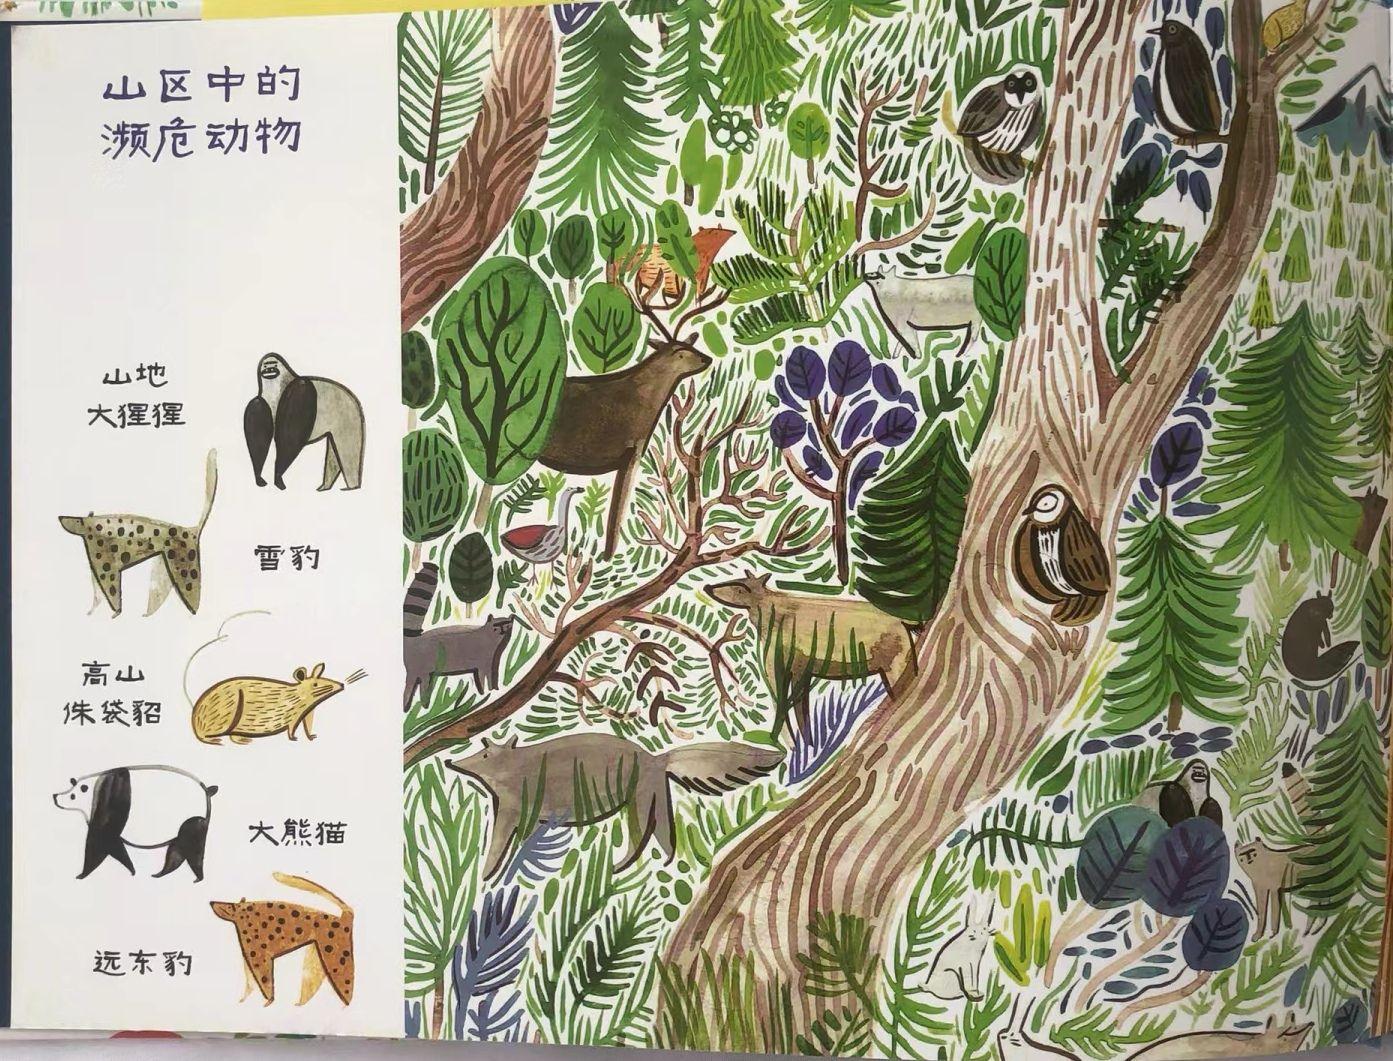 山区中的
濒危动物
山地
大猩猩
雪豹
高山
侏袋貂
大熊猫
远东豹